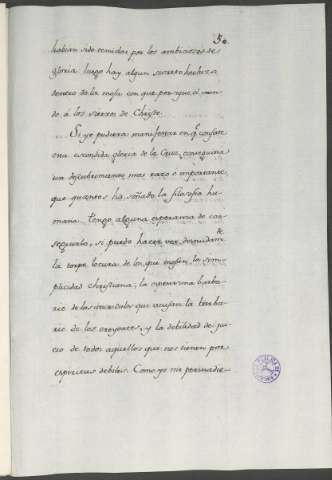 50.
habian sido tenidos por los ambiciosos de
gloria: luego hay algun secreto hechizo
dentro de la mofa con que persigue el mundo
á los siervos de Christo.
Si yo pudiera manifestar en q.e consiste
esta escondida gloria de la Cruz, conseguiria
un descubrimiento mas raro e importante,
que quantos ha soñado la filosofia hu-
mana. Tengo alguna esperanza de con-
seguirlo, si puedo hacer ver desnudam.te
la torpe locura de los que mofan la sim-
plicidad christiana; la espesisima barba-
rie de los incredulos que acusan la barba-
rie de los creyentes, y la debilidad de jui-
cio de todos aquellos que nos tienen por
espiritus debiles. Como yo me persuadie-